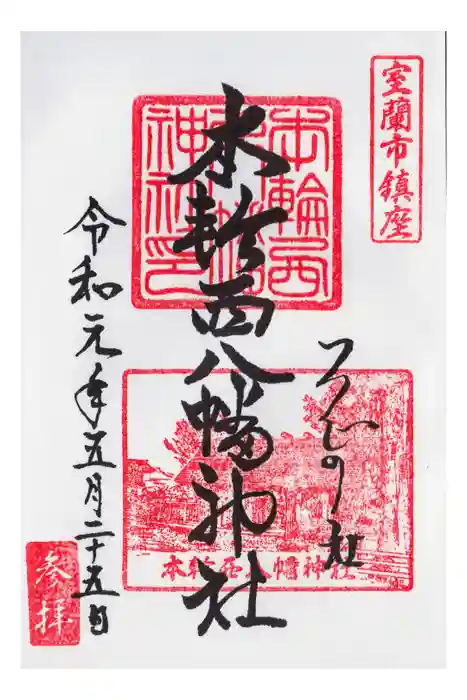 室蘭市鎮座
つゝじの社
本輪西八幡神社印
本輪西八幡神社
本輪西八幡神社
令和元年五月二十五日
参拝